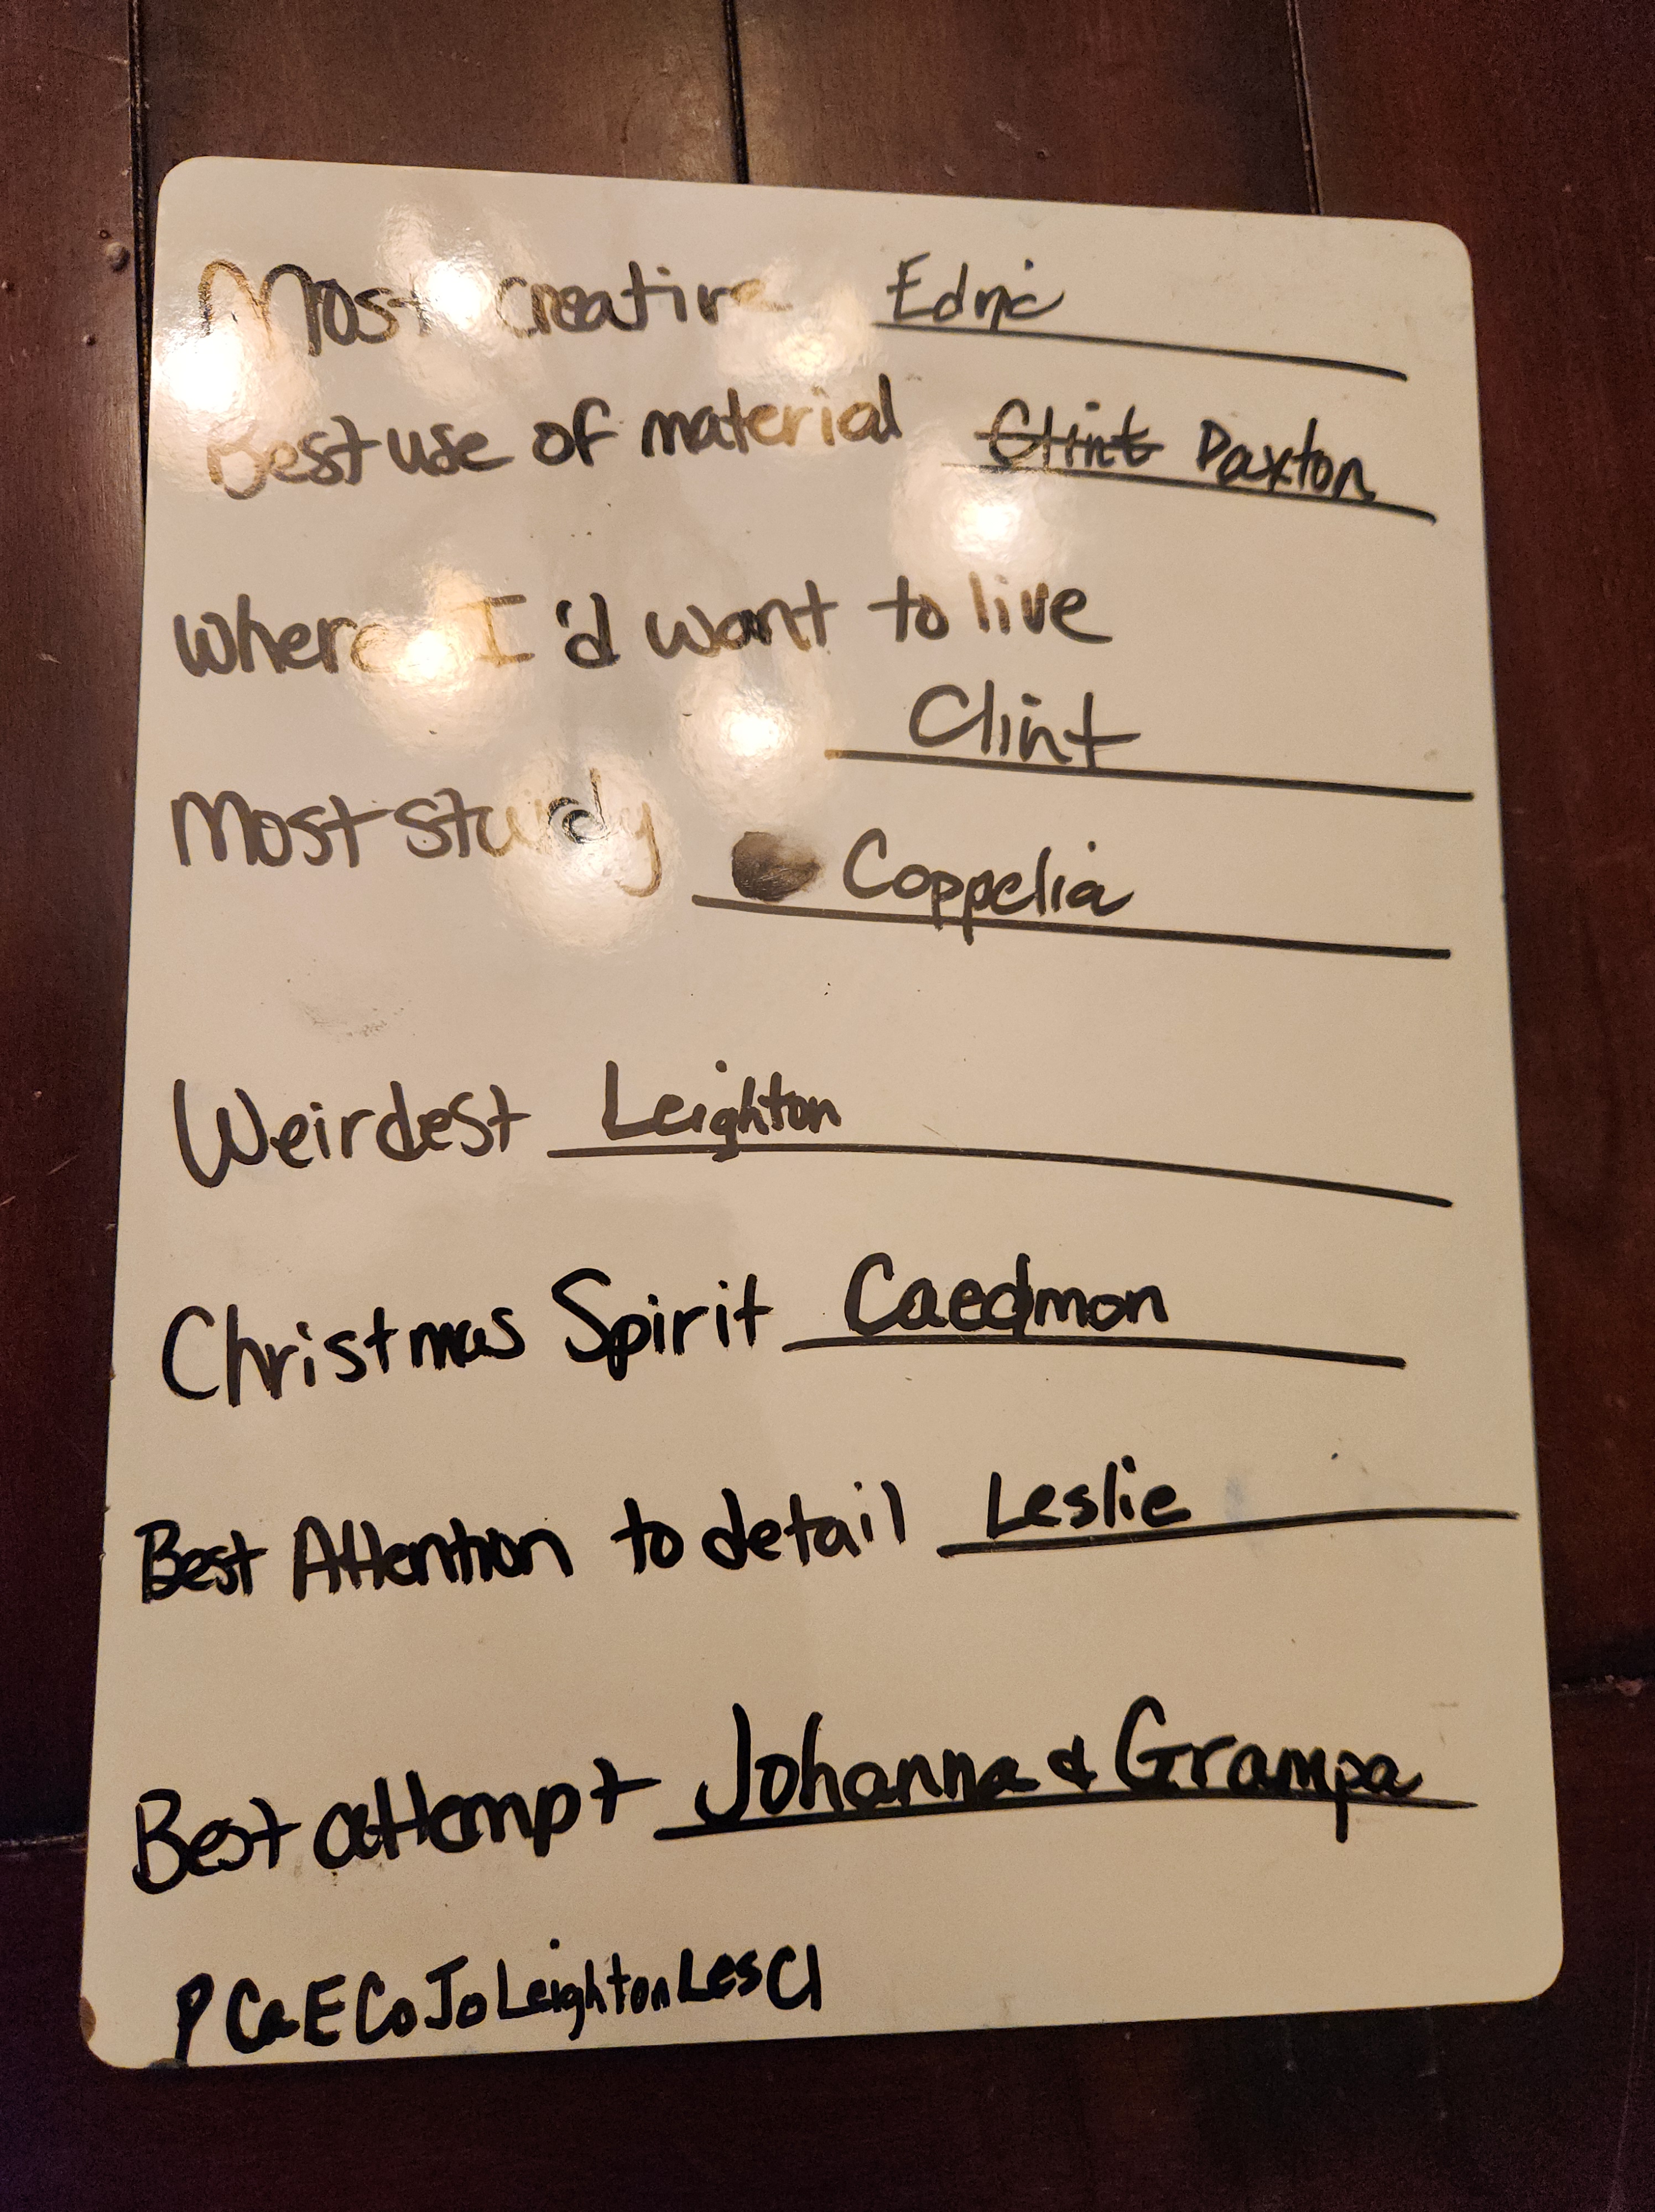 Most creative Edric
Best use of material Clint Daxton
Where I'd want to live
Clint
Most sturdy Coppelia
Weirdest Leighton
Christmas Spirit Caedmon
Best Attention to detail Leslie
Best attempt Johanna & Grampa
P Ca E Co Jo Leighton Les Cl